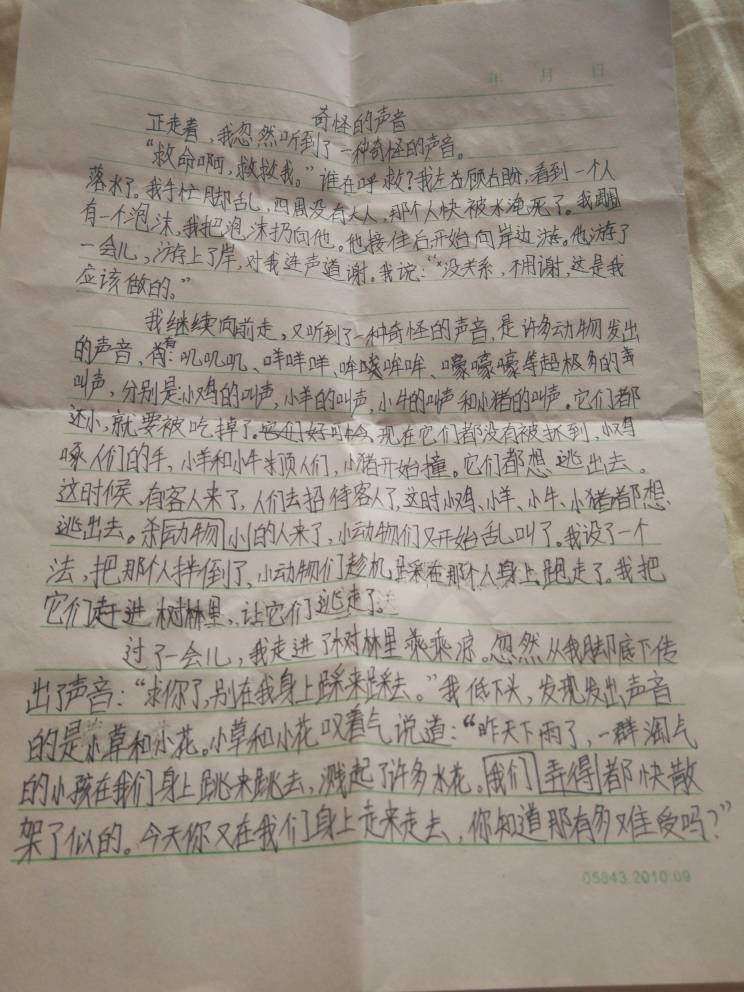 年 月 日
奇怪的声音
正走着，我忽然听到了一种奇怪的声音。
“救命啊，救救我。”谁在呼救？我左顾右盼，看到一个人
落水了。我手忙脚乱，四周没有大人，那个人快被水淹死了。我周围
有一个泡沫，我把泡沫扔向他。他接住后开始向岸边游。他游了
一会儿，游上了岸，对我连声道谢。我说：“没关系，不用谢，这是我
应该做的。”
我继续向前走，又听到了一种奇怪的声音，是许多动物发出
的声音，有：叽叽叽、咩咩咩、哞哞哞、嚎嚎嚎等超极多的
叫声，分别是小鸡的叫声，小羊的叫声，小牛的叫声和小猪的叫声。它们都
还小，就要被吃掉了。现在它们都没有被抓到，小鸡
啄人们的手，小羊和小牛顶人们，小猪开始撞。它们都想逃出去。
这时候，有客人来了，人们去招待客人了，这时小鸡、小羊、小牛、小猪都想
逃出去。杀动物小的人来了，小动物们又开始乱叫了。我设了一个
法，把那个人拌倒了，小动物们趁机踩在那个人身上跑走了。我把
它们赶进树林里，让它们逃走了。
过了一会儿，我走进了树林里乘乘凉。忽然从我脚底下传
出了声音：“求你了，别在我身上踩来踩去。”我低下头，发现发出声音
的是小草和小花。小草和小花叹着气说道：“昨天下雨了，一群淘气
的小孩在我们身上跳来跳去，溅起了许多水花。我们弄得都快散
架了似的。今天你又在我们身上走来走去，你知道那有多难受吗？”
05843.2010.09